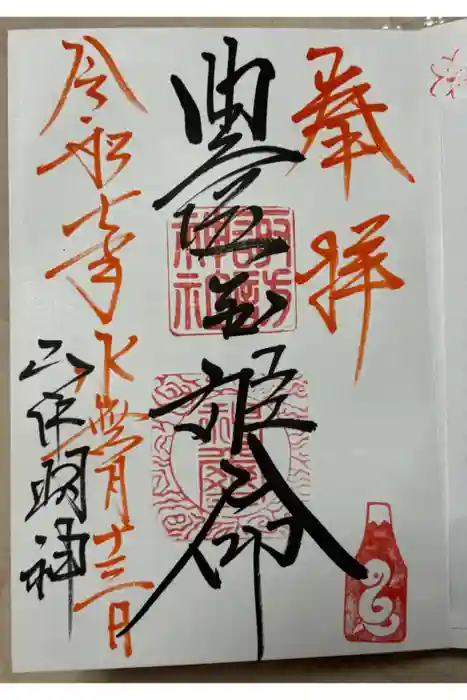 奉拝
豊玉姫命
諏訪神社
令和七年水無月十三日
明神